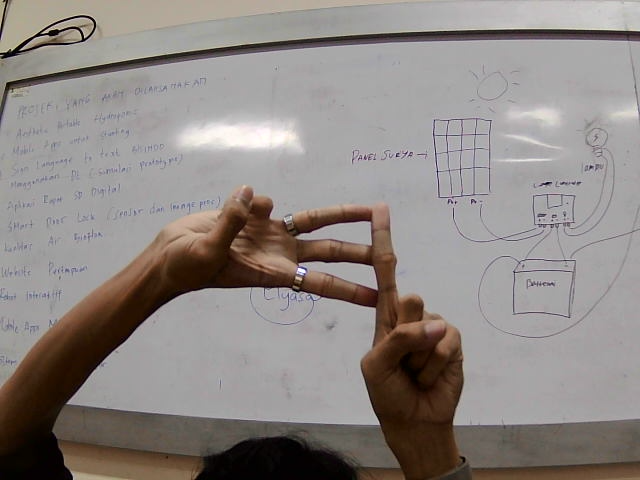 PROJEK YANG AKAN DILAKSANAKAN
Aesthetic Portable Hydroponic
Mobile Apps untuk Stunting
Sign Language to text BISINDO
Menggunakan DL (simulasi prototype)
Aplikasi Rapor SD Digital
Smart Door Lock (sensor dan image proc)
kualitas Air
Website
Robot Interaktif
Mobile Apps
Elyasa
PANEL SURYA →
P+ P-
LAMPU
Baterai